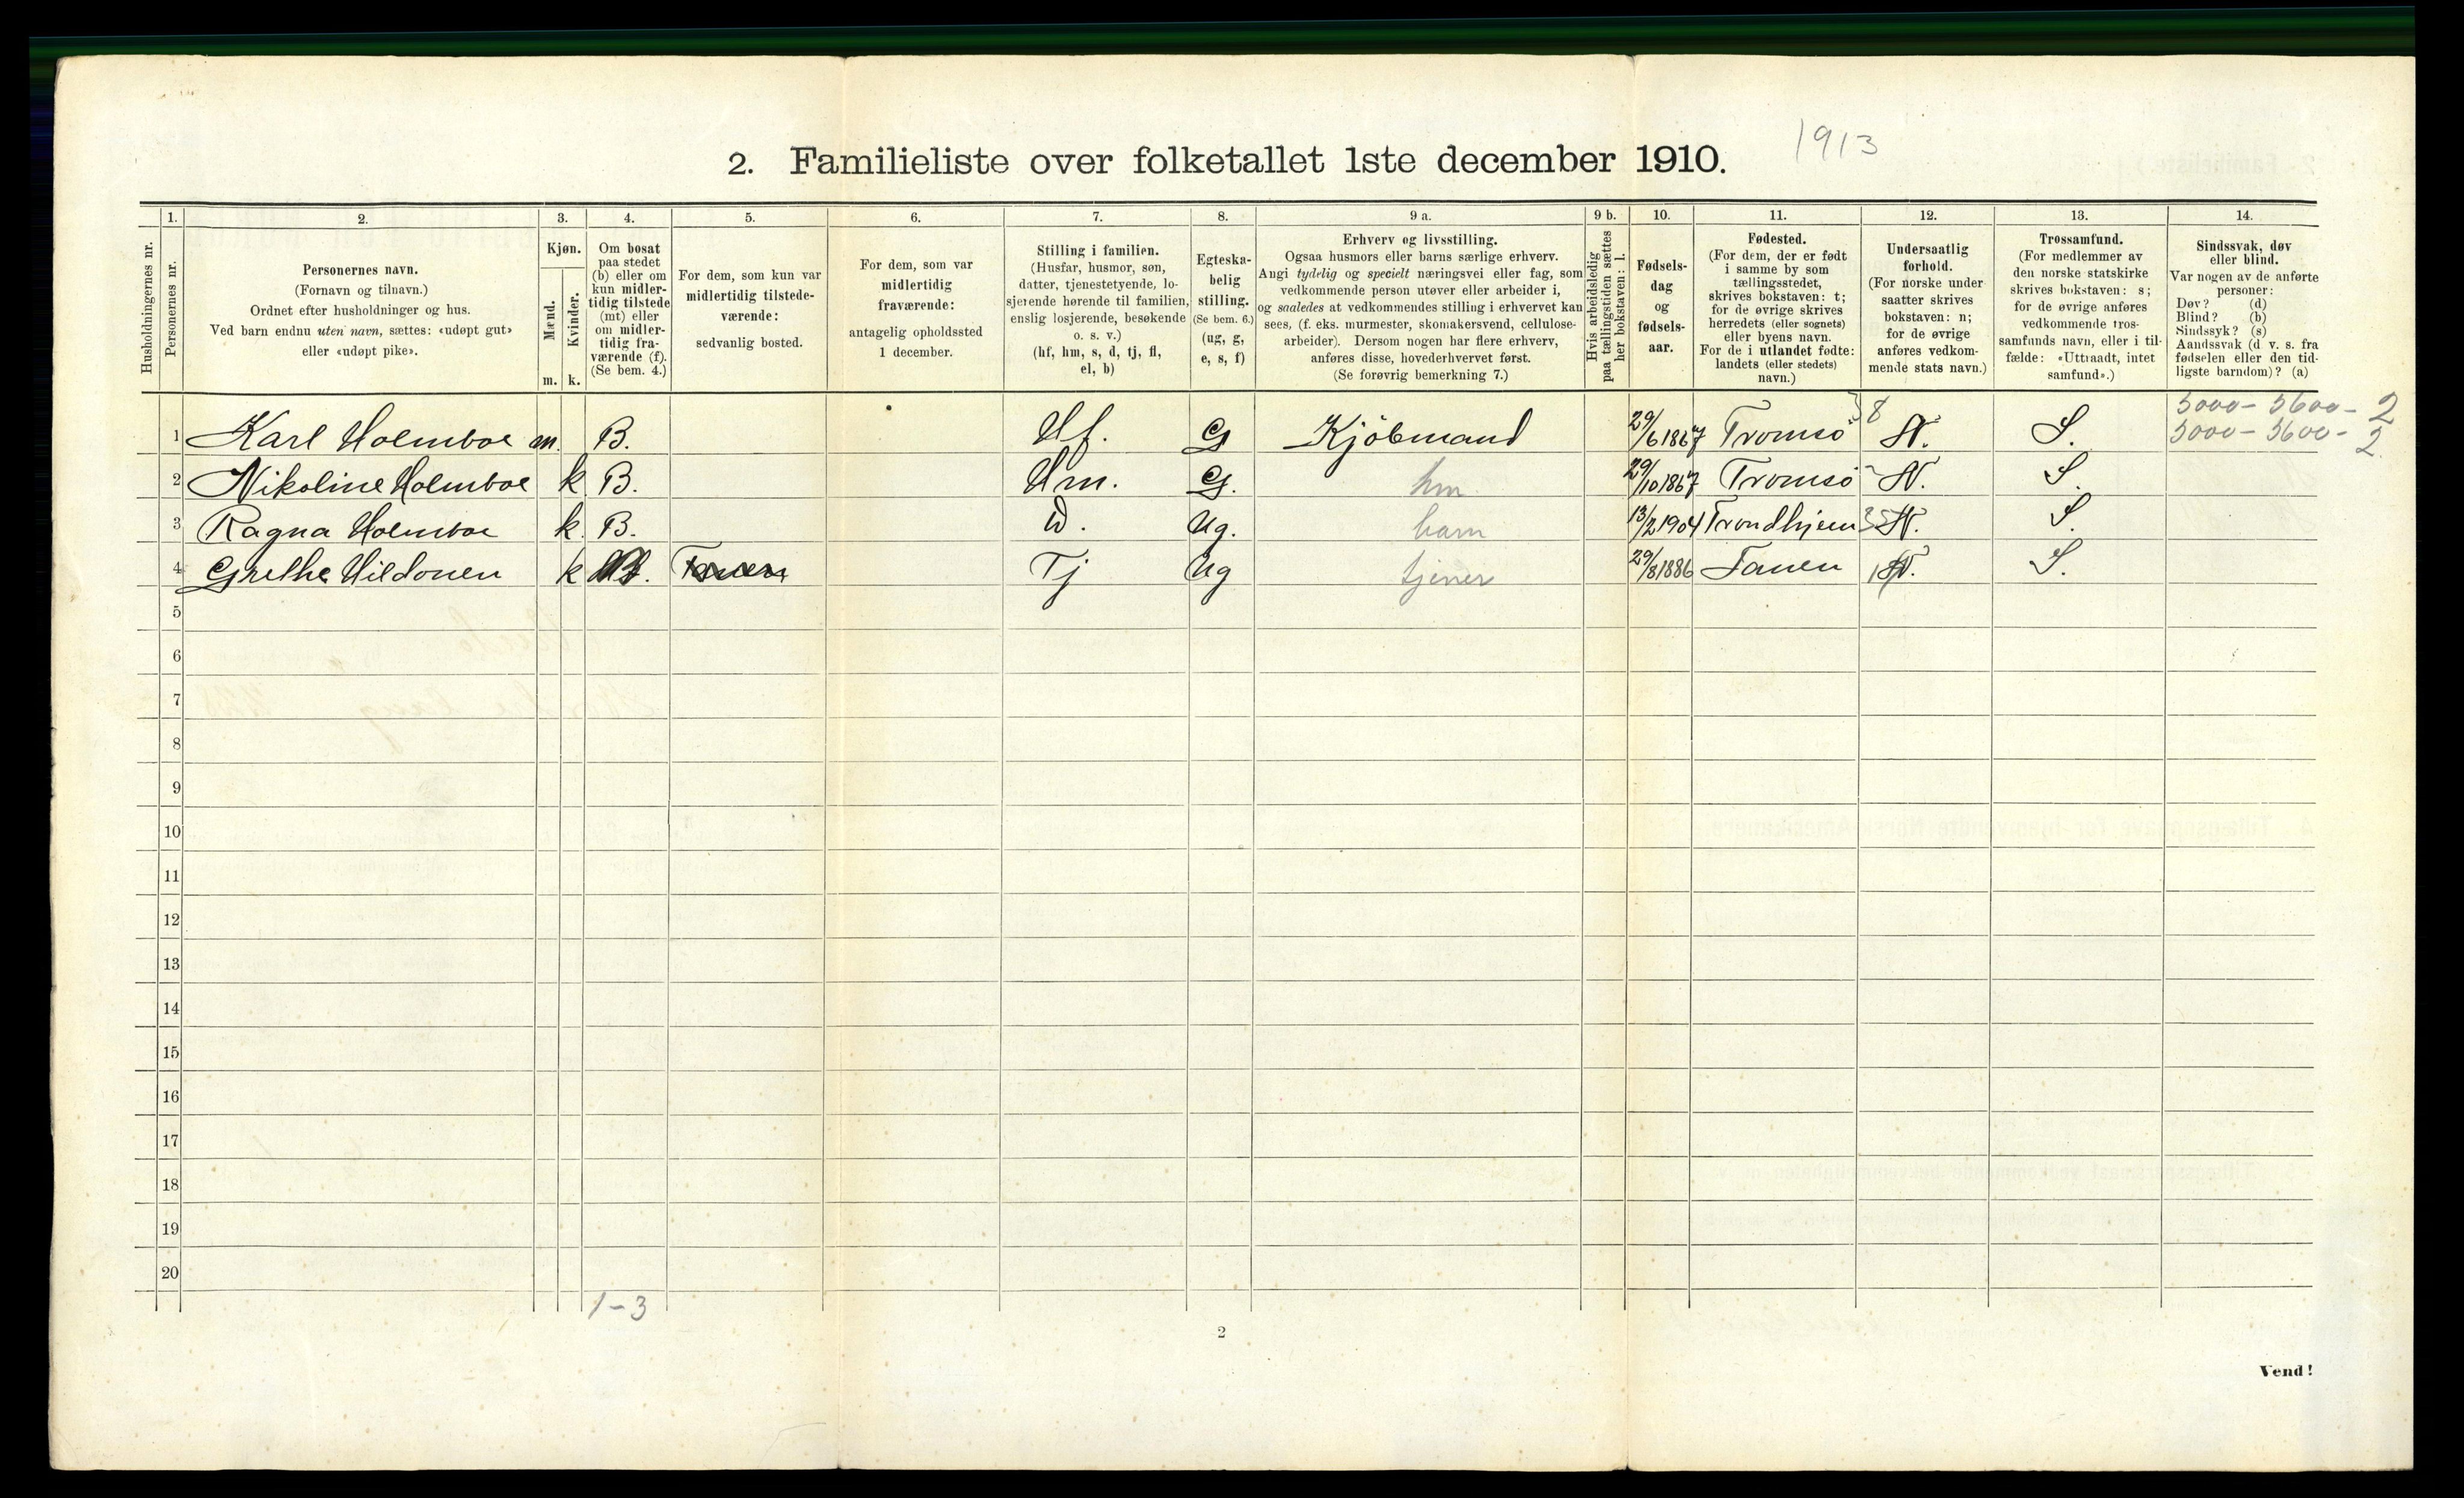 1913
2. Familieliste over folketallet 1ste december 1910.
Husholdningernes nr.
1.
Personernes nr.
2.
Personernes navn.
(Fornavn og tilnavn.)
Ordnet efter husholdninger og hus.
Ved barn endnu uten navn, sættes: «udøpt gut»
eller «udøpt pike».
3.
Kjøn.
Mænd.
Kvinder.
m. k.
4.
Om bosat
paa stedet
(b) eller om
kun midler-
tidig tilstede
(mt) eller
om midler-
tidig fra-
værende (f).
(Se bem. 4.)
5.
For dem, som kun var
midlertidig tilstede-
værende:
sedvanlig bosted.
6.
For dem, som var
midlertidig
fraværende:
antagelig opholdssted
1 december.
7.
Stilling i familien.
(Husfar, husmor, søn,
datter, tjenestetyende, lo-
sjerende hørende til familien,
enslig losjerende, besøkende
o. s. v.)
(hf, hm, s, d, tj, fl,
el, b)
8.
Egteska-
belig
stilling.
(Se bem. 6.)
(ug, g,
e, s, f)
9 a.
Erhverv og livsstilling.
Ogsaa husmors eller barns særlige erhverv.
Angi tydelig og specielt næringsvei eller fag, som
vedkommende person utøver eller arbeider i,
og saaledes at vedkommendes stilling i erhvervet kan
sees, (f. eks. murmester, skomakersvend, cellulose-
arbeider). Dersom nogen har flere erhverv,
anføres disse, hovederhvervet først.
(Se forøvrig bemerkning 7.)
9 b.
Hvis arbeidsledig
paa tællingstiden sættes
her bokstaven: l.
10.
Fødsels-
dag
og
fødsels-
aar.
11.
Fødested.
(For dem, der er født
i samme by som
tællingsstedet,
skrives bokstaven: t;
for de øvrige skrives
herredets (eller sognets)
eller byens navn.
For de i utlandet fødte:
landets (eller stedets)
navn.)
12.
Undersaatlig
forhold.
(For norske under
saatter skrives
bokstaven: n;
for de øvrige
anføres vedkom-
mende stats navn.)
13.
Trossamfund.
(For medlemmer av
den norske statskirke
skrives bokstaven: s;
for de øvrige anføres
vedkommende tros-
samfunds navn, eller i til-
fælde: «Uttraadt, intet
samfund».)
14.
Sindssvak, døv
eller blind.
Var nogen av de anførte
personer:
Døv? (d)
Blind? (b)
Sindssyk? (s)
Aandssvak (d v. s. fra
fødselen eller den tid-
ligste barndom)? (a)
5000 - 5600 - 2
1 Karl Holmboe m. B. Hf. G Kjöbmand 29/6 1867 Tromsö 8 N. S. 5000 - 5600 - 2
2 Nikoline Holmboe k B. Hm. G. hm 29/10 1867 Tromsö N. S.
3 Ragna Holmboe k. B. D. Ug. barn 13/2 1904 Trondhjem 35 N. S.
4 Grethe Hildonen k Tj Ug tjener 29/8 1886 Tanen N. S.
5
6
7
8
9
10
11
12
13
14
15
16
17
18
19
20
1-3
2
Vend!